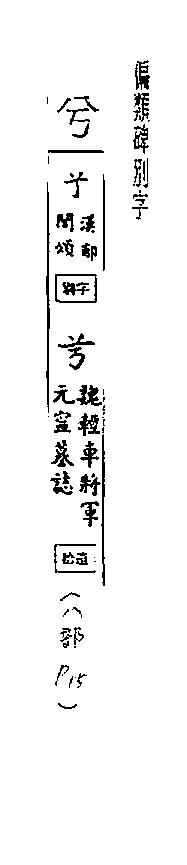 偏類碑別字
兮
漢郙
閣頌
別字
兮
魏輕車將軍
元寍墓誌
拾遺
(八部 P15)